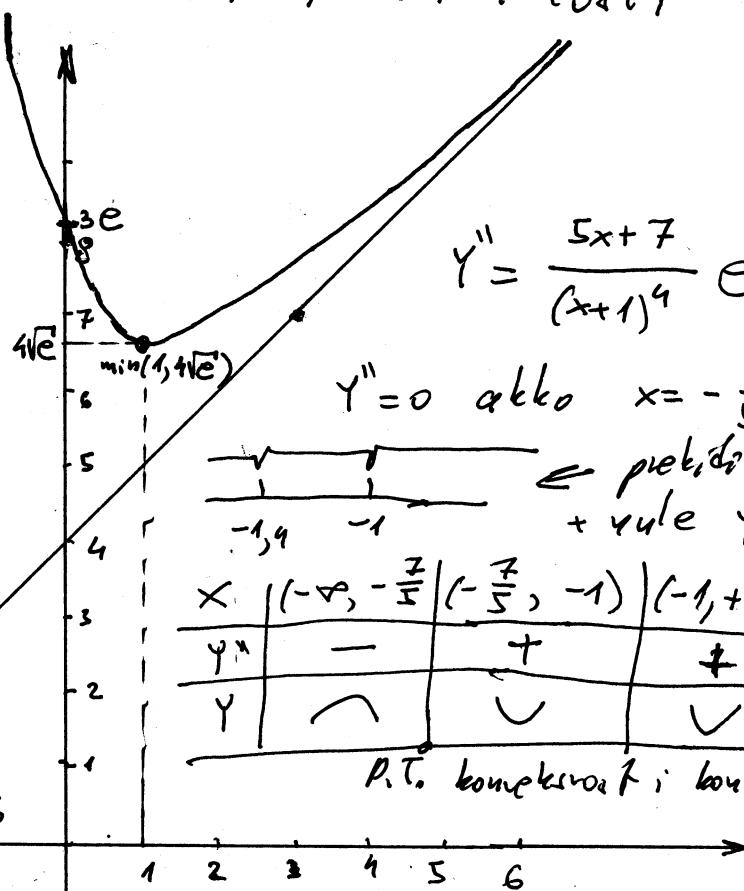 3e
8
7
4√e
min(1, 4√e)
6
5
4
3
2
1
1 2 3 4 5 6
Y'' = 5x+7 / (x+1)^4 e
Y''=0 akko x= -
← prekidi
+ nule
-1,4 -1
X (-∞, -7/5 (-7/5, -1) (-1, +
Y'' - + +
Y ⌒ ∪ ∪
P.T. konveksnost i kon